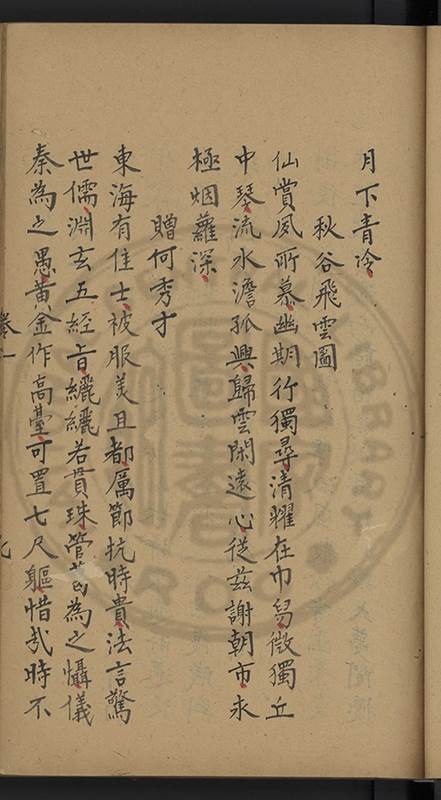 月下青冷
秋谷飛雲圖
仙賞夙所慕幽期行獨尋清耀在巾舄微獨丘
中琴流水澹孤興歸雲閑遠心從茲謝朝市永
極烟蘿深
贈何秀才
東海有佳士被服美且都厲節抗時貴法言驚
世儒淵玄五經旨纚纚若貫珠管葛為之懾儀
秦為之愚黃金作高臺可置七尺軀惜哉時不
卷一
九